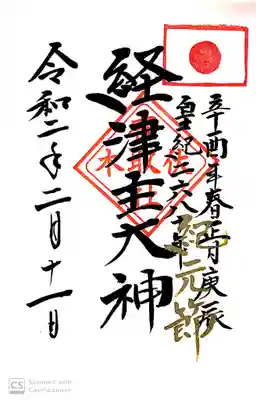 辛酉年春正月庚辰
皇紀二六八十年
紀元節
経津主大神
令和二年二月十一日
CS Scanned with
CamScanner